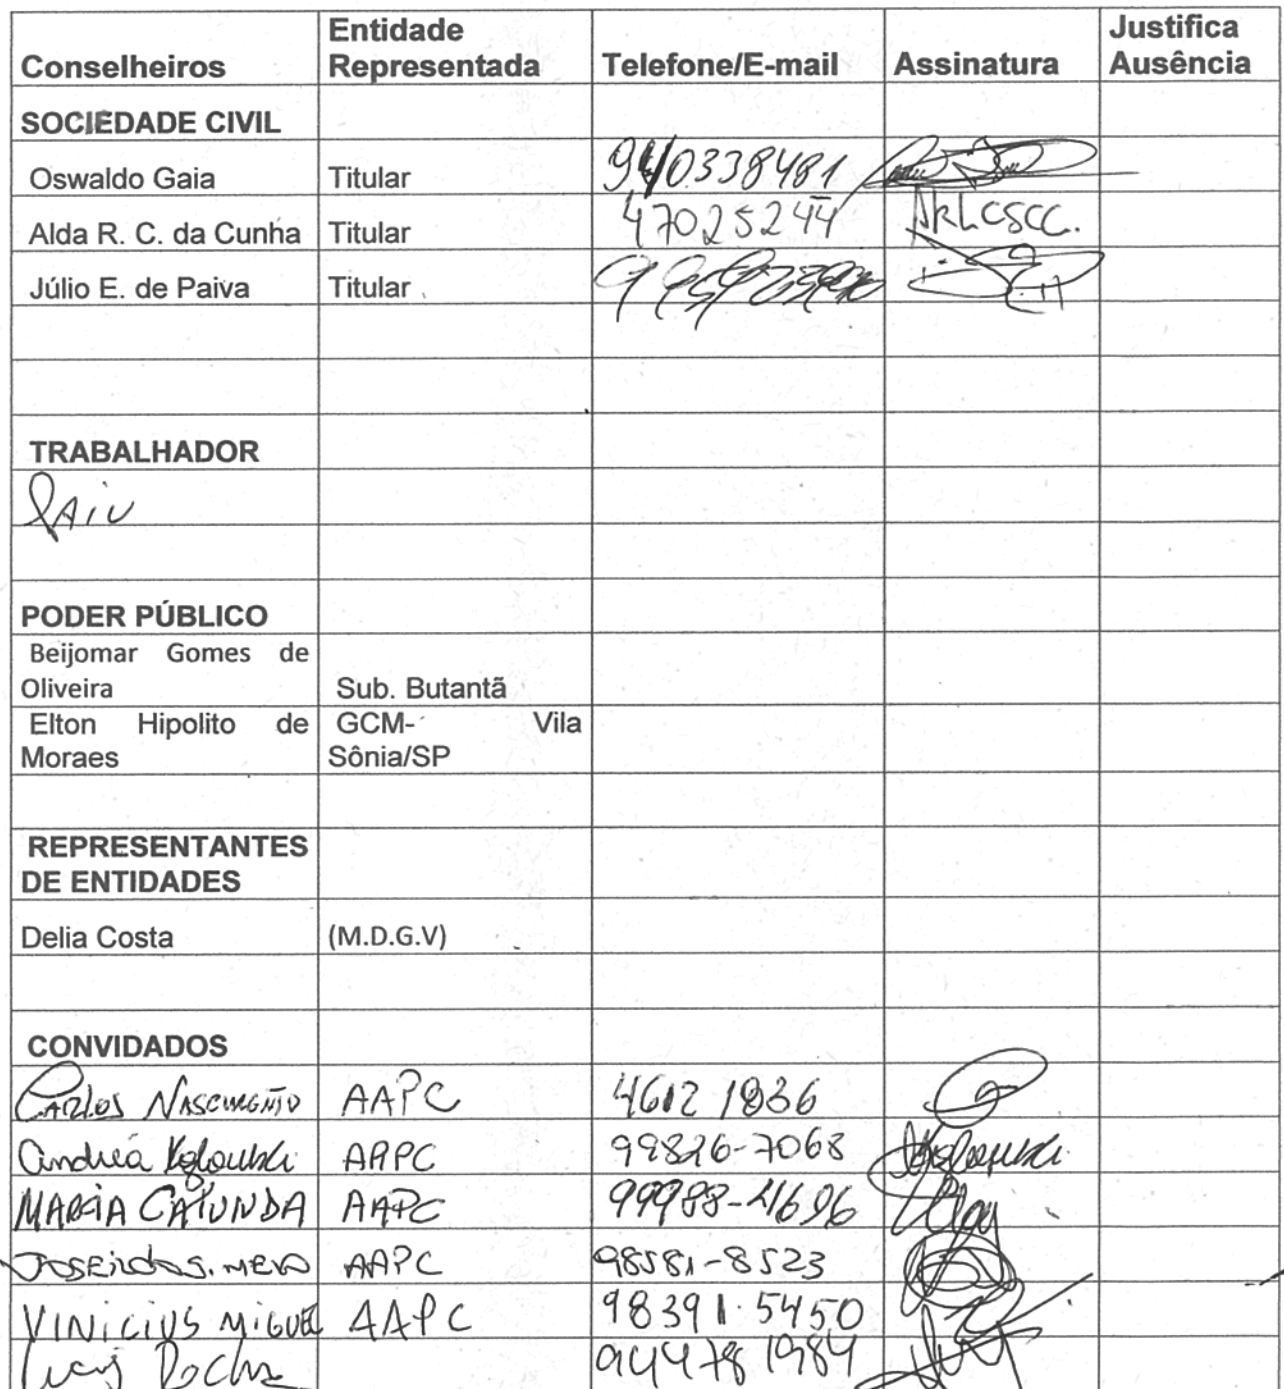 Conselheiros Entidade Representada Telefone/E-mail Assinatura Justifica Ausência
SOCIEDADE CIVIL
Oswaldo Gaia Titular 940338481
Alda R. C. da Cunha Titular 47025244
Júlio E. de Paiva Titular
TRABALHADOR
PODER PÚBLICO
Beijomar Gomes de
Oliveira Sub. Butantã
Elton Hipolito de GCM- Vila
Moraes Sônia/SP
REPRESENTANTES
DE ENTIDADES
Delia Costa (M.D.G.V)
CONVIDADOS
Carlos Nascimento AAPC 4612 1836
Andréa AAPC 99826-7068
MARCIA CATUNDA AAPC 99988-4696
AAPC 98581-8523
VINICIUS MIGUEL AAPC 98391.5450
Rocha 94478 1984